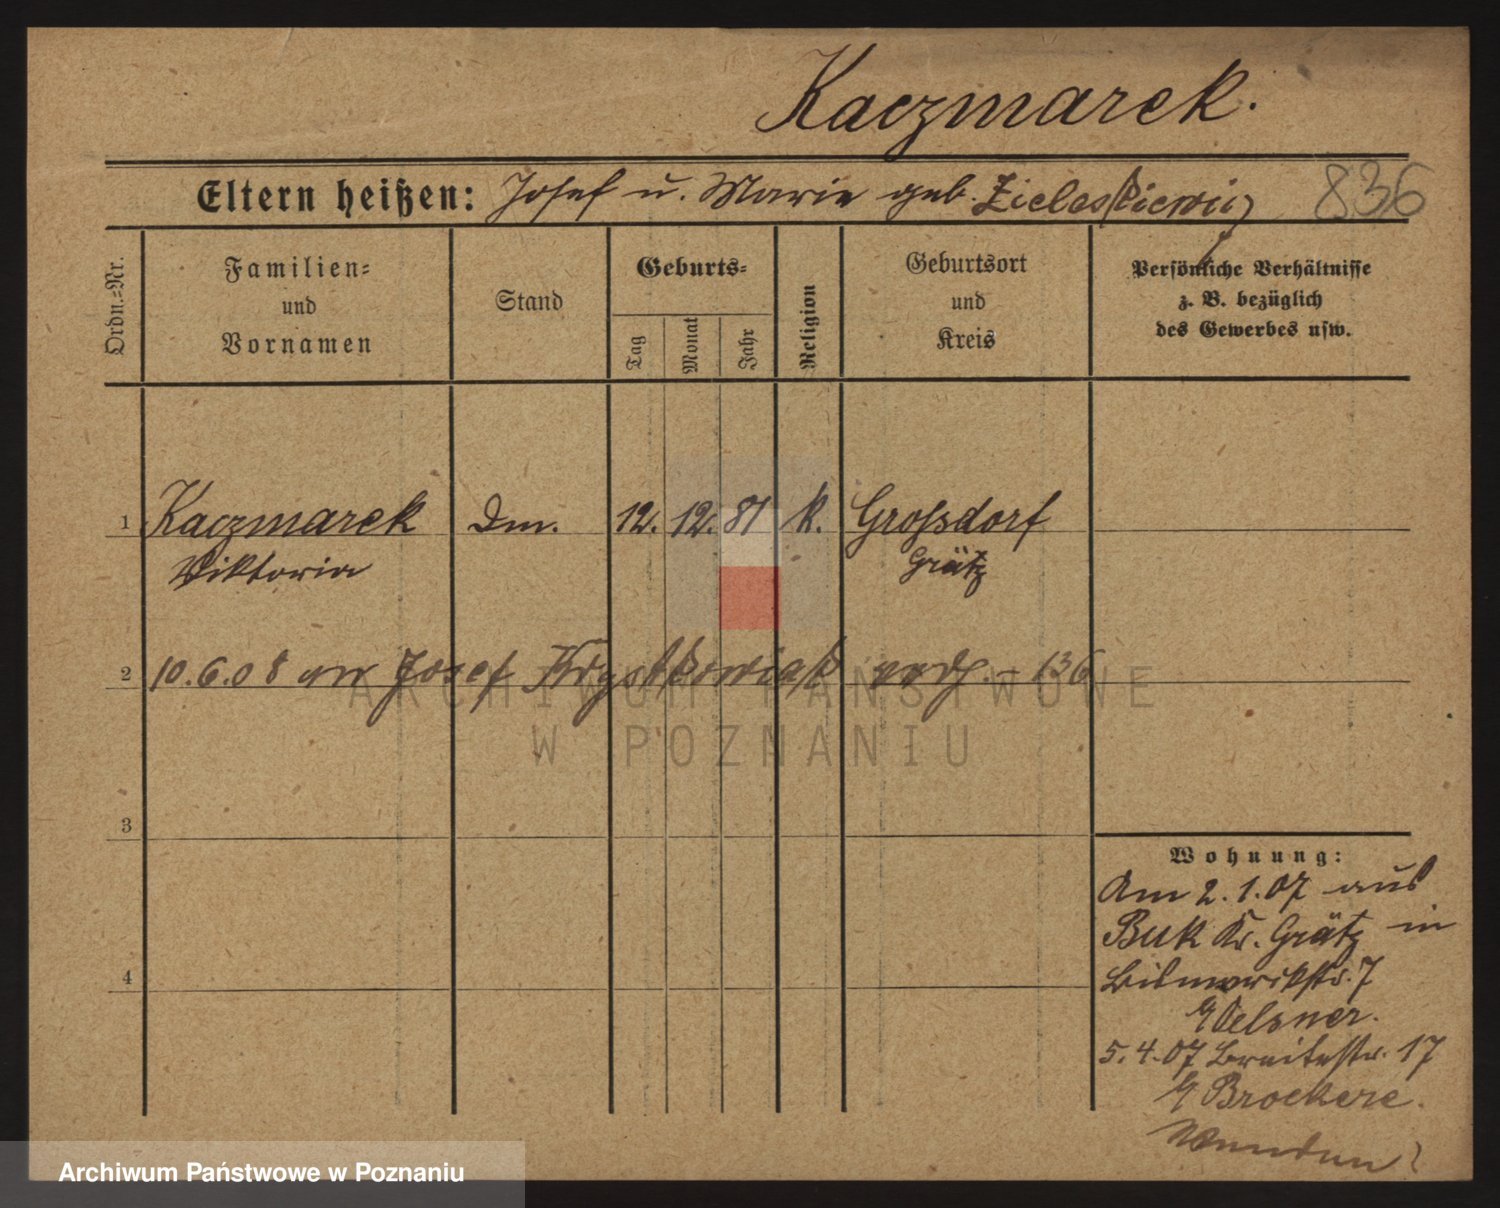 Kaczmarek.
Eltern heißen: Josef u. Marie geb. Zieleskiewicz
836
Ordn.=Nr.
Familien=
und
Vornamen
Stand
Geburts=
Tag
Monat
Jahr
Religion
Geburtsort
und
Kreis
Persönliche Verhältnisse
z. B. bezüglich
des Gewerbes usw.
1 Kaczmarek Dm. 12. 12. 81 k. Grossdorf
Viktoria Grätz
2 10.6.08 an Josef Krystkowiak verh. - 136
3
4
Wohnung:
Am 2.1.07 aus
Buk Kr. Grätz in
Bismarckstr. 7
b/ Oelsner.
5.4.07 Breitestr. 17
b/ Brockere.
ARCHIWUM PAŃSTWOWE
W POZNANIU
Archiwum Państwowe w Poznaniu